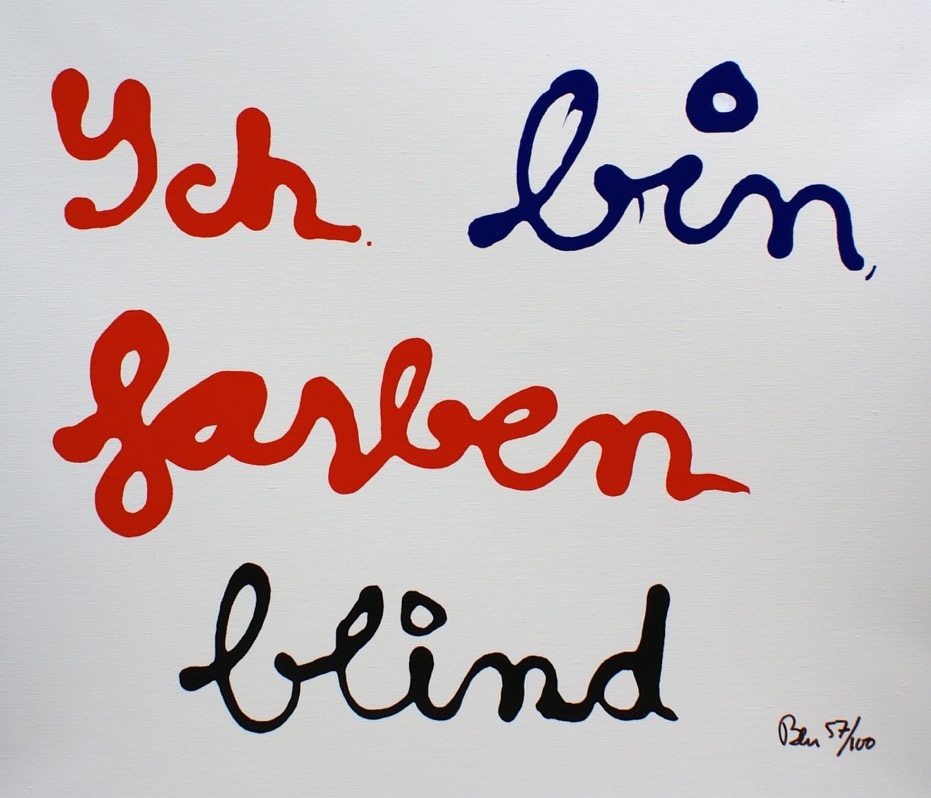 Ych. bin,
farben
blind
Ben 57/100